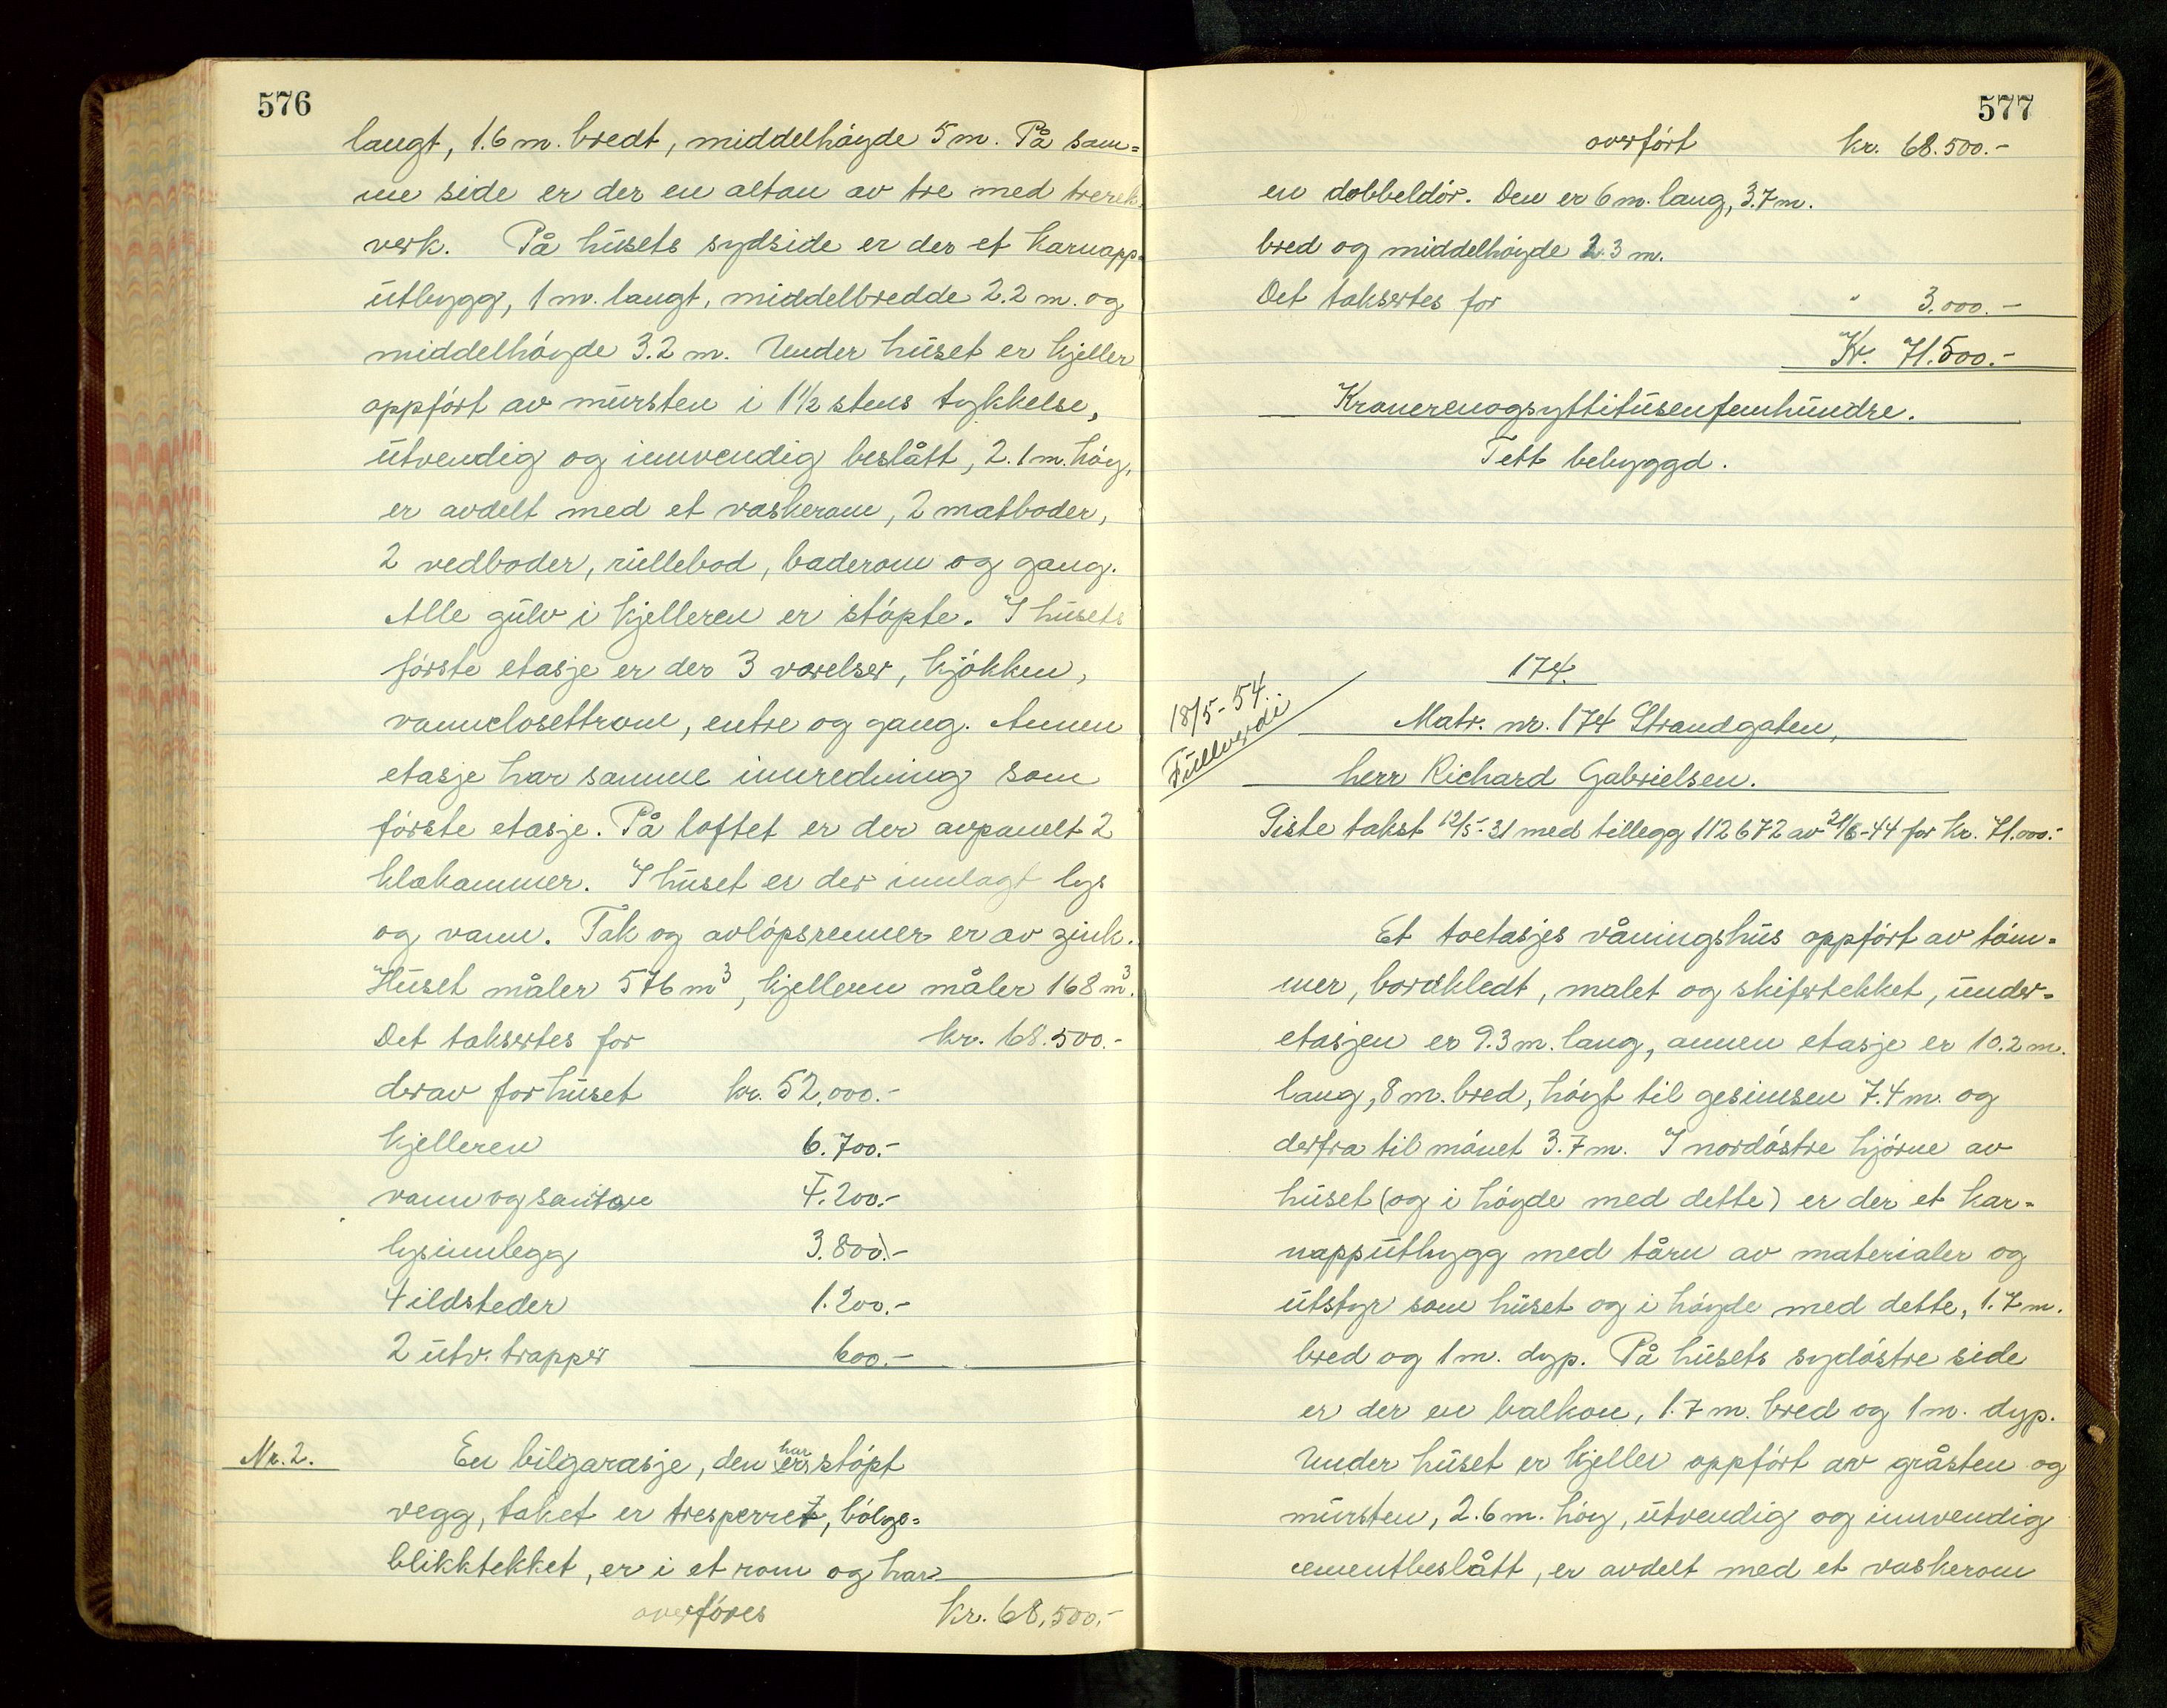 576
langt, 1.6 m. bredt, middelhöyde 5 m. På sam-
me side er der en altan av tre med trerek-
verk. På husets sydside er der et karnapp-
utbygg, 1 m. langt, middelbredde 2.2 m. og
middelhöyde 3.2 m. Under huset er kjeller
oppfört av mursten i 1½ stens tykkelse,
utvendig og innvendig beslått, 2.1 m. höy,
er avdelt med et vaskerom, 2 matboder,
2 vedboder, rullebod, baderom og gang.
Alle gulv i kjelleren er stöpte. I husets
förste etasje er der 3 værelser, kjökken,
vannclosettrom, entre og gang. Annen
etasje har samme innredning som
förste etasje. På loftet er der avpanelt 2
klækammer. I huset er der innlagt lys
og vann. Tak og avlöpsrenner er av zink.
Huset måler 576 m³, kjelleren måler 168 m³.
Det taksertes for kr. 68.500.-
derav for huset kr. 52.000.-
kjelleren 6.700.-
vann og sanitære 4.200.-
lysinnlegg 3.800.-
4 ildsteder 1.200.-
2 utv. trapper 600.-
Nr. 2. En bilgarasje, den har er stöpt
vegg, taket er tresperret, bölge-
blikktekket, er i et rom og har
overföres kr. 68.500.-
577
overfört kr. 68.500.-
en dobbeldör. Den er 6 m. lang, 3.7 m.
bred og middelhöyde 2.3 m.
Det taksertes for " 3.000.-
Kr. 71.500.-
Kronerenogsyttitusenfemhundre.
Tett bebyggd.
174.
18/5-54
Fullverdi
Matr. nr. 174 Strandgaten,
herr Richard Gabrielsen.
Siste takst 12/5-31 med tillegg 112672 av 21/6-44 for kr. 71.000.-
Et toetasjes våningshus oppfört av töm-
mer, bordkledt, malet og skifertekket, under-
etasjen er 9.3 m. lang, annen etasje er 10.2 m.
lang, 8 m. bred, höyt til gesimsen 7.4 m. og
derfra til mönet 3.7 m. I nordöstre hjörne av
huset (og i höyde med dette) er der et kar-
napputbygg med tårn av materialer og
utstyr som huset og i höyde med dette, 1.7 m.
bred og 1 m. dyp. På husets sydöstre side
er der en balkon, 1.7 m. bred og 1 m. dyp.
Under huset er kjeller oppfört av gråsten og
mursten, 2.6 m. höy, utvendig og innvendig
cementbeslått, er avdelt med et vaskerom